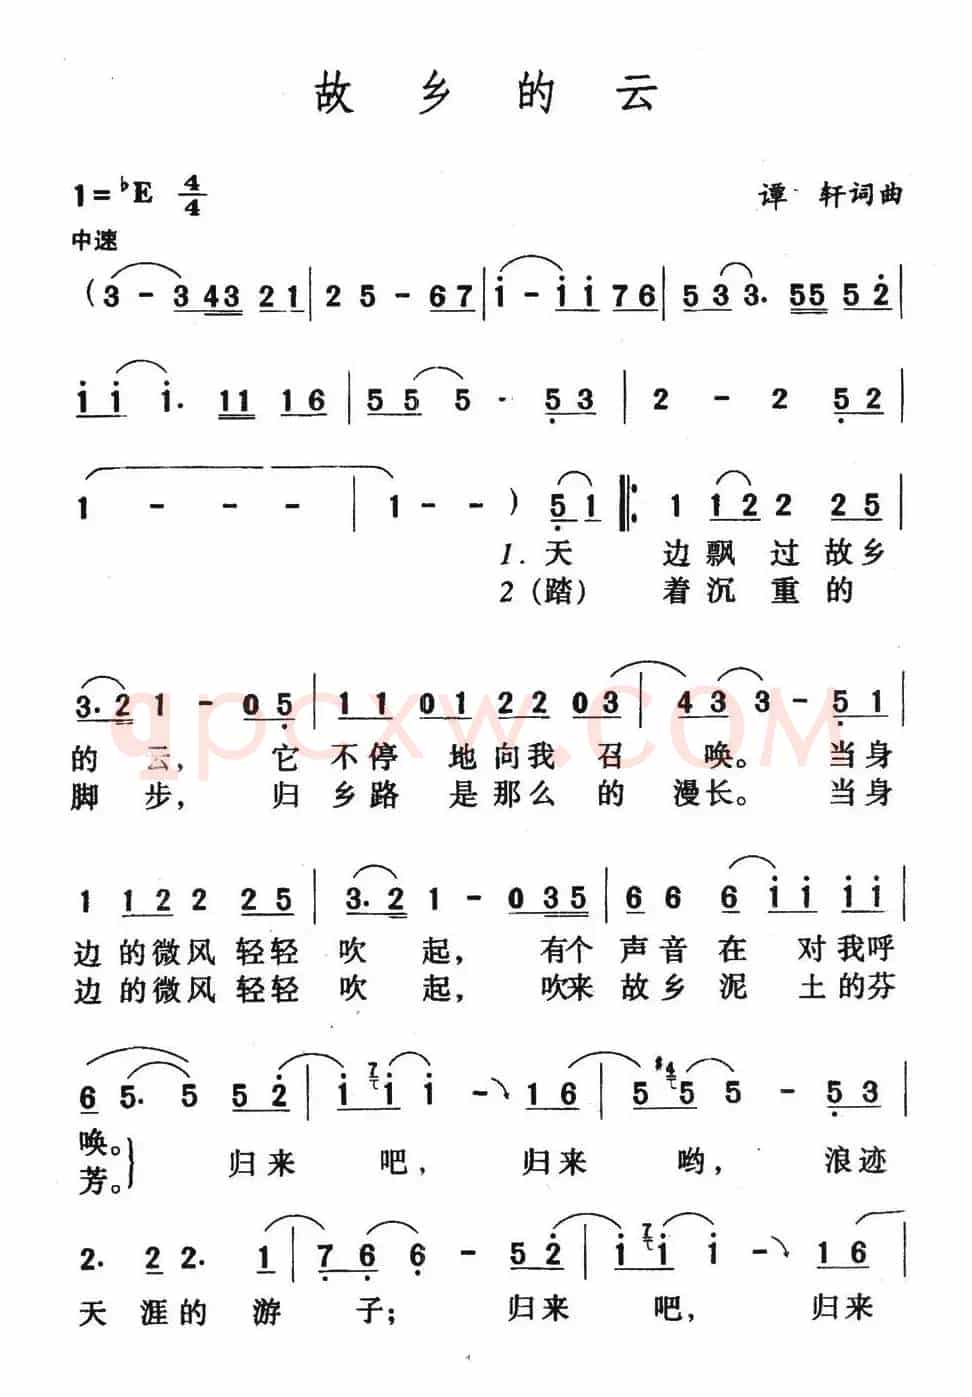 故乡的云
1=♭E 4/4
谭轩词曲
中速
(3 - 3 43 21 | 2 5 - 67 | i - i i 76 | 5 3 3. 55 5 2 |
i i i. 11 16 | 5 5 5 · 5 3 | 2 - 2 5 2 |
1 - - - | 1 - - ) 5 1 ‖: 1 1 2 2 2 5 |
1.天 边飘过故乡
2(踏) 着沉重的
3. 2 1 - 0 5 | 1 1 0 1 2 2 0 3 | 4 3 3 - 5 1 |
的云，它不停地向我召唤。当身
脚步，归乡路是那么的漫长。当身
1 1 2 2 2 5 | 3. 2 1 - 0 3 5 | 6 6 6 i i i |
边的微风轻轻吹起，有个声音在对我呼
边的微风轻轻吹起，吹来故乡泥土的芬
6 5. 5 5 2 | i 7 i i - 1 6 | 5 #4 5 5 - 5 3 |
唤。
芳。} 归来吧，归来哟，浪迹
2. 2 2. 1 | 7 6 6 - 5 2 | i 7 i i - 1 6 |
天涯的游子；归来吧，归来
qpcxw.COM